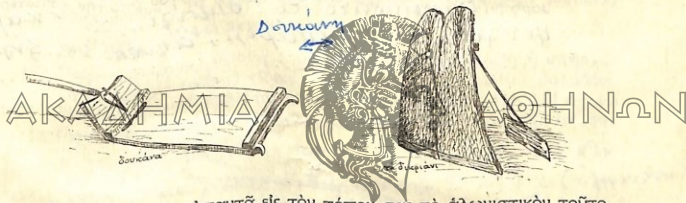 Δουκάνη
ΑΚΑΔΗΜΙΑ ΑΘΗΝΩΝ
δουκάνα
δικριάνι
εἰς τὸν τόπον
ἁλωνιστικὸν τοῦτο